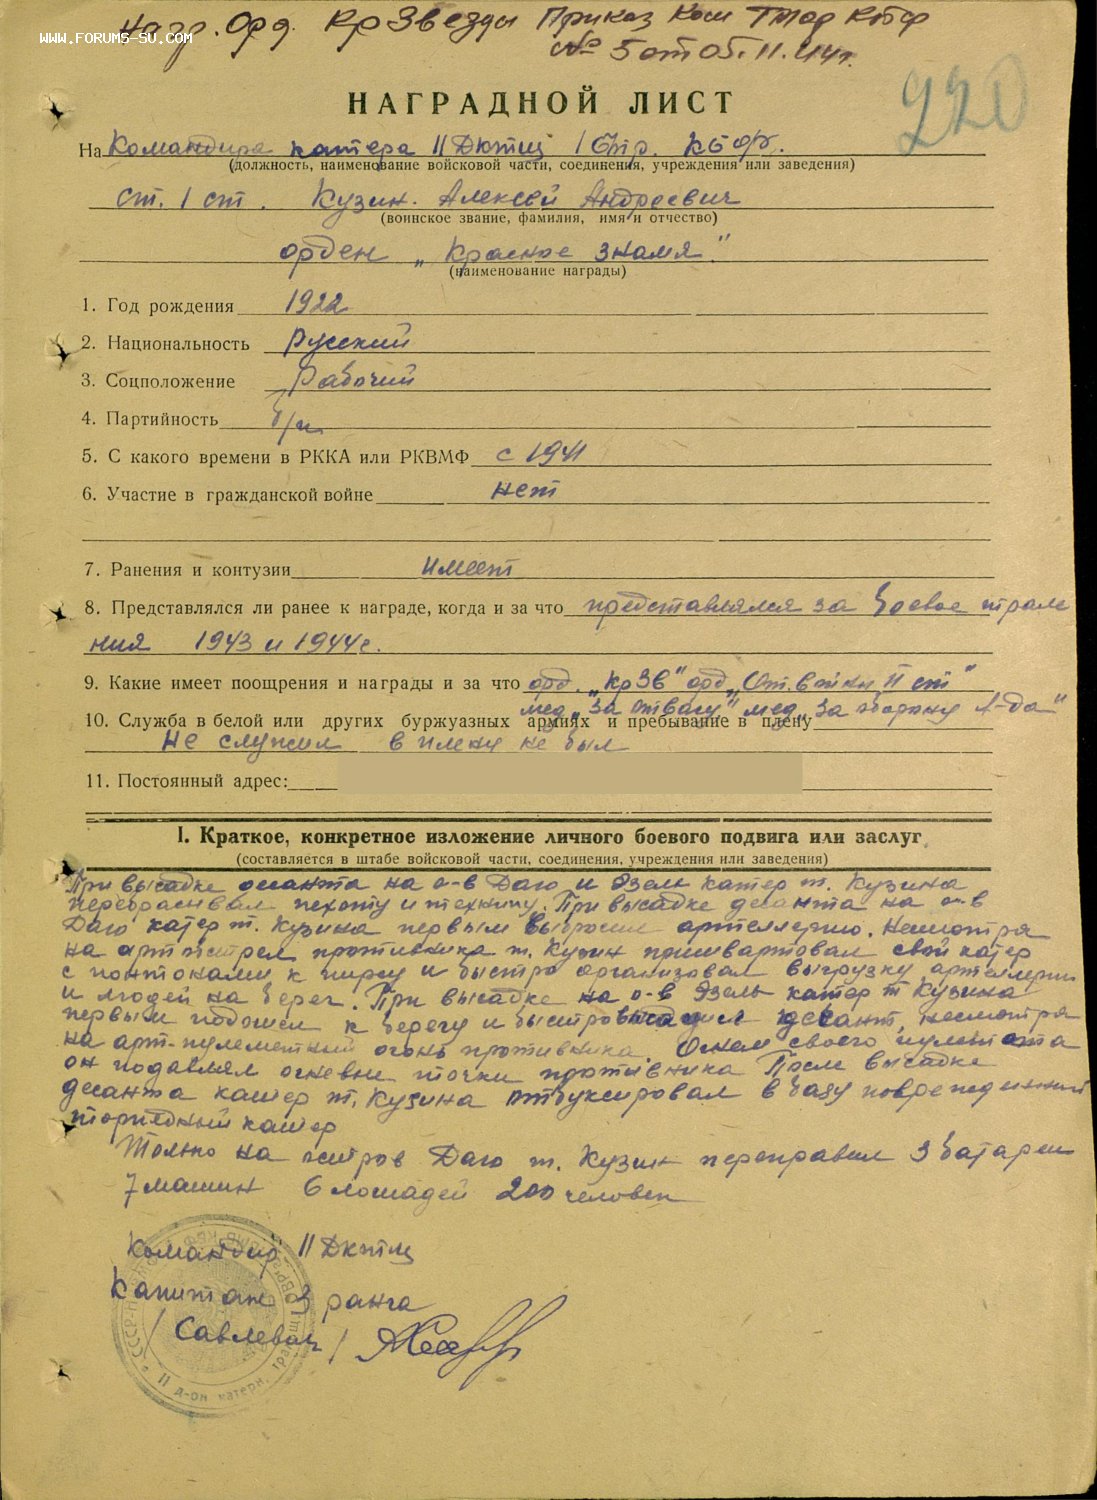 Нагр. Орд. Кр Звезды Приказ Ком ТМОР КБФ
WWW.FORUMS-SU.COM
№ 5 от 05.11.44г.
220
НАГРАДНОЙ ЛИСТ
На Командира катера 11 Дктщ 1 Бтр. КБФ.
(должность, наименование войсковой части, соединения, учреждения или заведения)
ст. 1 ст. Кузин. Алексей Андреевич
(воинское звание, фамилия, имя и отчество)
орден „Красное знамя"
(наименование награды)
1. Год рождения 1922
2. Национальность Русский
3. Соцположение Рабочий
4. Партийность б/п
5. С какого времени в РККА или РКВМФ с 1941
6. Участие в гражданской войне нет
7. Ранения и контузии имеет
8. Представлялся ли ранее к награде, когда и за что представлялся за боевое трале
ния 1943 и 1944г.
9. Какие имеет поощрения и награды и за что орд. „Кр Зв" орд „От. войны II ст"
мед „За отвагу" мед „За оборону Л-да"
10. Служба в белой или других буржуазных армиях и пребывание в плену
Не служил в плену не был
11. Постоянный адрес:
I. Краткое, конкретное изложение личного боевого подвига или заслуг
(составляется в штабе войсковой части, соединения, учреждения или заведения)
При высадке десанта на о-в Даго и Эзель катер т. Кузина
перебрасывал пехоту и технику. При высадке десанта на о-в
Даго катер т. Кузина первым выбросил артиллерию. Несмотря
на артобстрел противника т. Кузин пришвартовал свой катер
с понтонами к пирсу и быстро организовал выгрузку артиллерии
и людей на берег. При высадке на о-в Эзель катер т Кузина
первым подошел к берегу и быстро высадил десант, несмотря
на арт-пулеметный огонь противника. Огнем своего пулемета
он подавлял огневые точки противника После высадке
десанта катер т. Кузина отбуксировал в базу поврежденный
торпедный катер
Только на остров Даго т. Кузин переправил 3 батареи
7 машин 6 лошадей 200 человек
Командир 11 Дктщ
Капитан 3 ранга
/ Савлевич /
11 д-он катерн.